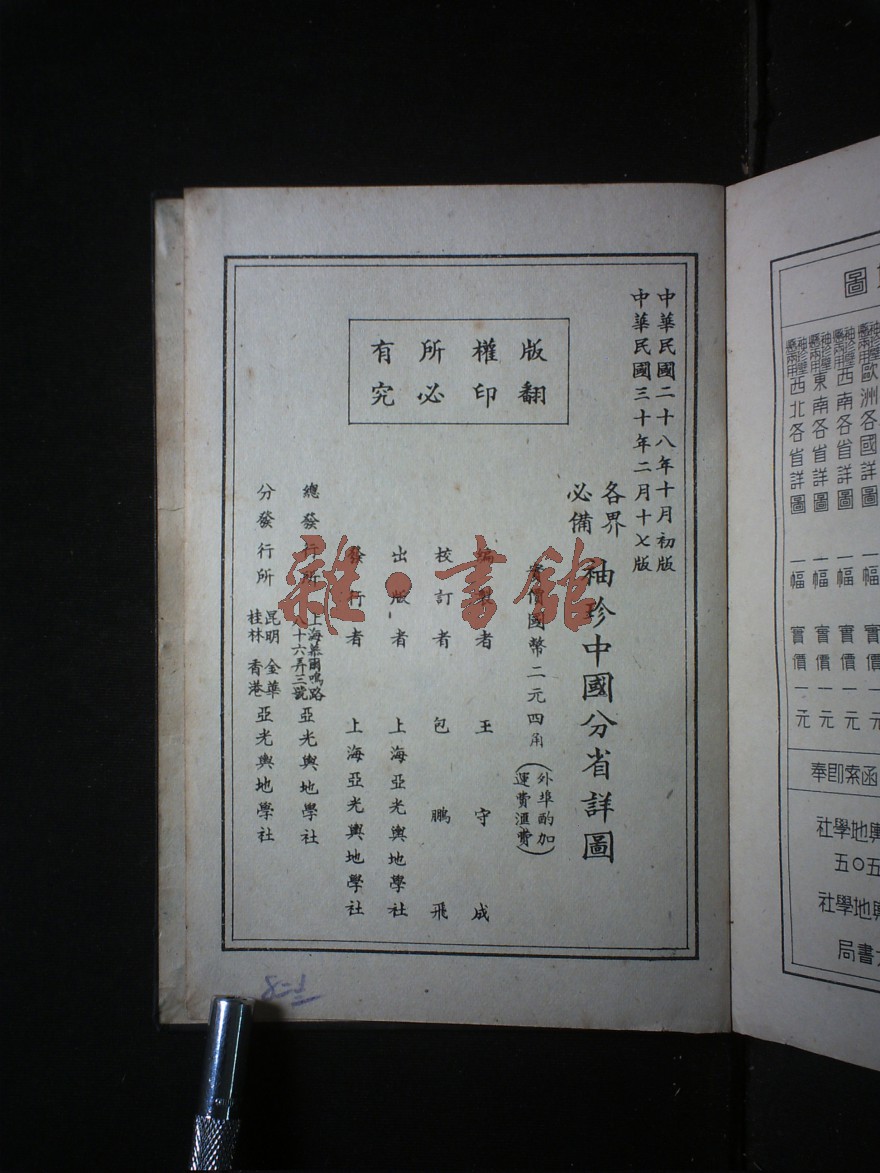 中華民國二十八年十月初版
中華民國三十年二月十七版
各界
必備
袖珍中國分省詳圖
實價國幣二元四角
（外埠酌加
運費滙費）
編製者 王守成
校訂者 包鵬飛
出版者 上海亞光輿地學社
發行者 上海亞光輿地學社
總發行所
上海慕爾鳴路
八十六弄三號
亞光輿地學社
分發行所
昆明 金華
桂林 香港
亞光輿地學社
版權所有
翻印必究
雜·書館
圖
歐洲各國詳圖 一幅 實價一元
西南各省詳圖 一幅 實價一元
東南各省詳圖 一幅 實價一元
西北各省詳圖 一幅 實價一元
函索即奉
輿地學社
五〇五
輿地學社
書局